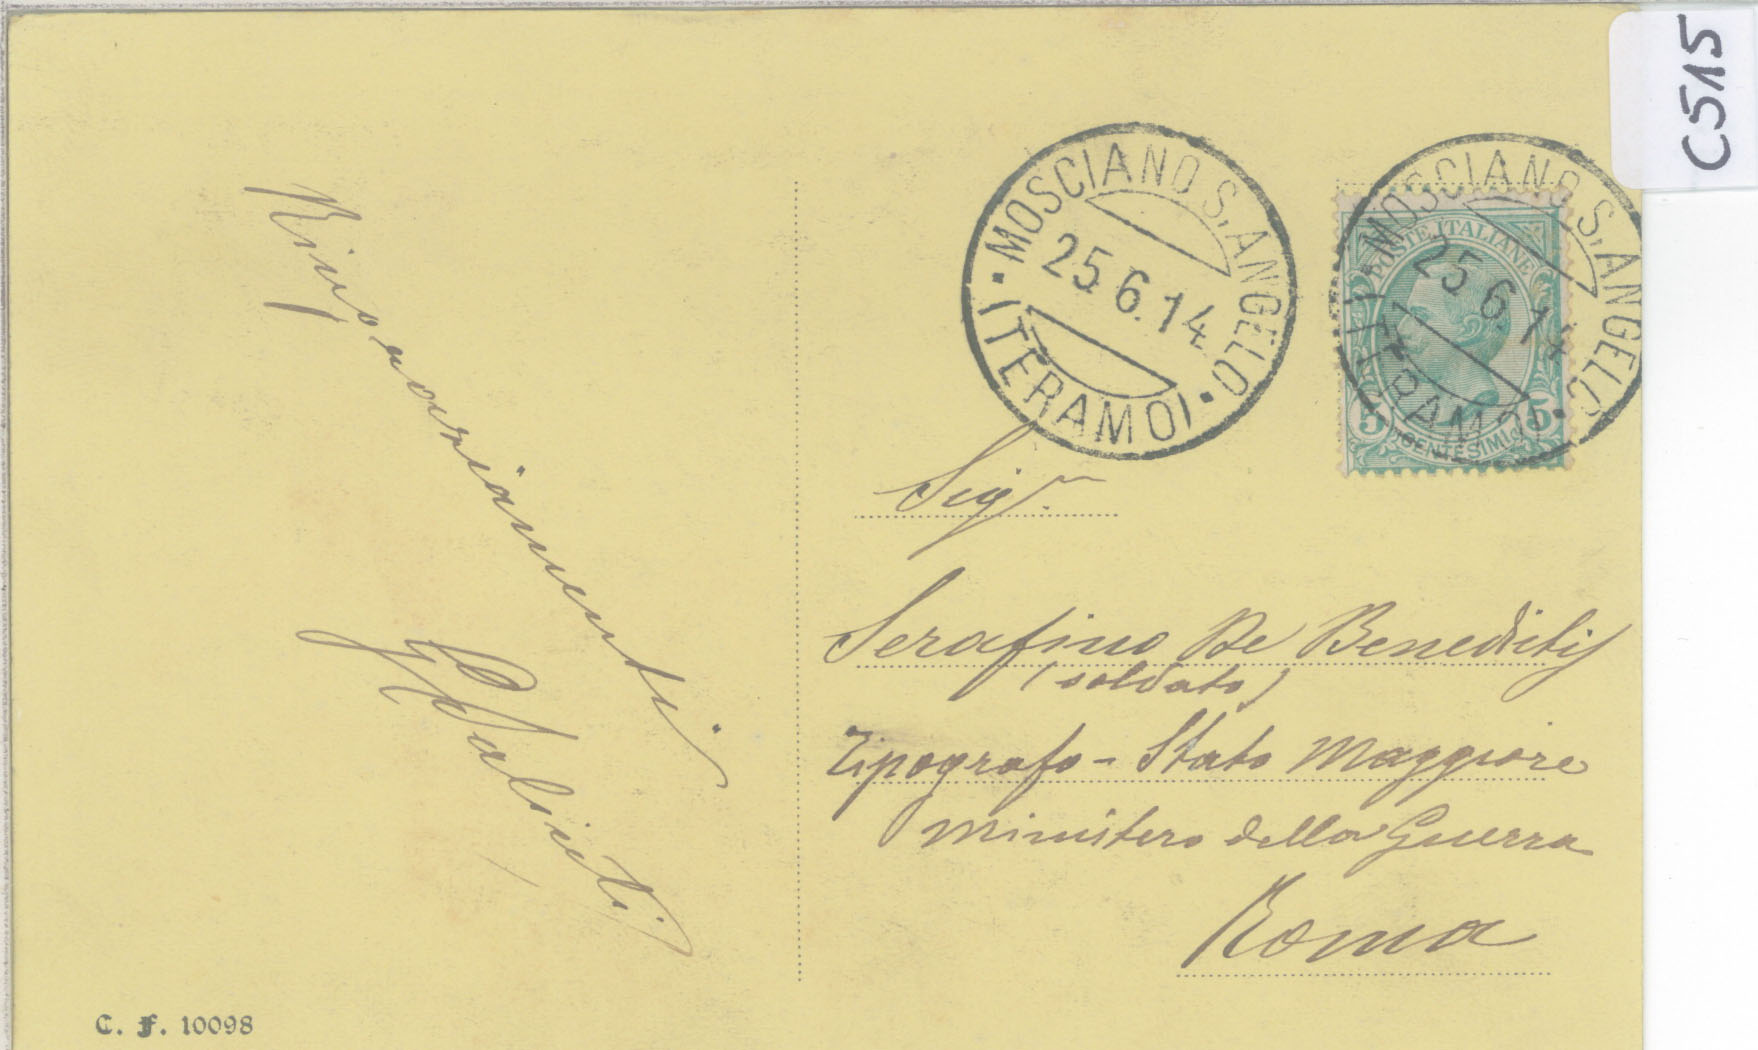 C515
MOSCIANO S. ANGELO
25.6.14
(TERAMO)
MOSCIANO S. ANGELO
25.6.14
(TERAMO)
POSTE ITALIANE
5 CENTESIMI 5
Ringraziamenti
Sigr.
Serafino De Benedictis
(soldato)
Tipografo - Stato Maggiore
Ministero della Guerra
Roma
C. F. 10098